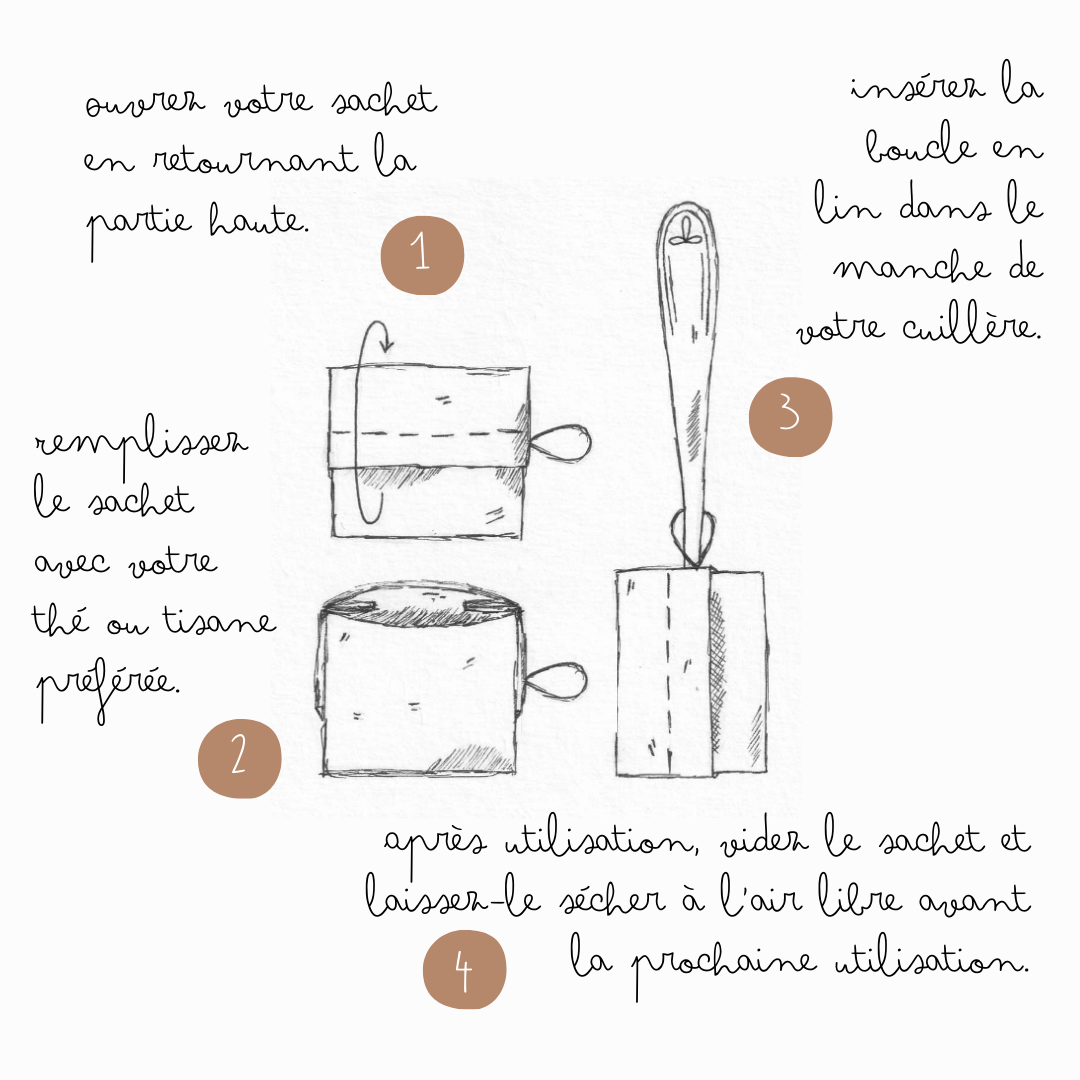 ouvrez votre sachet
en retournant la
partie haute.
1
remplissez
le sachet
avec votre
thé ou tisane
préférée.
2
insérez la
boucle en
lin dans le
manche de
votre cuillère.
3
après utilisation, videz le sachet et
laissez-le sécher à l'air libre avant
la prochaine utilisation.
4